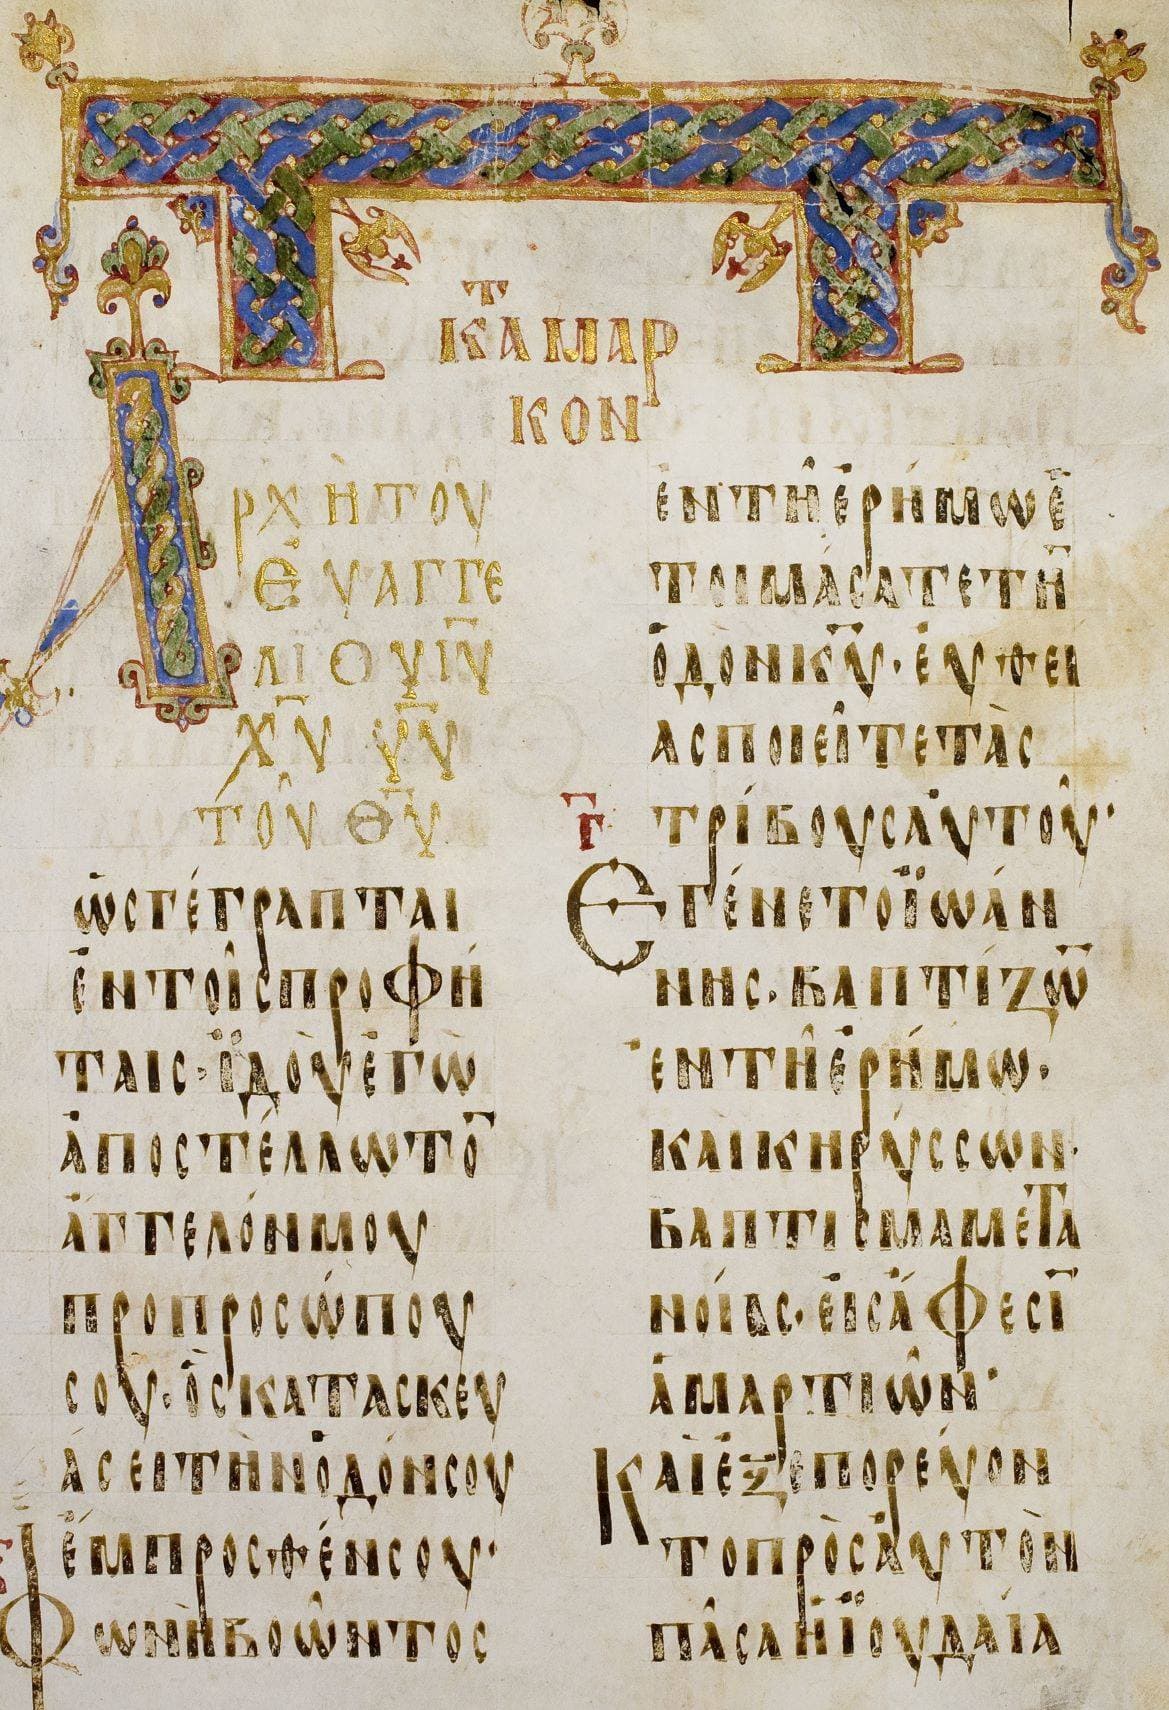 κατ̅α μαρ
κον
Ἀρχὴ τοῦ
εὐαγγε
λίου ι̅υ̅
χ̅υ̅ υ̅υ̅
τοῦ θ̅υ̅
ὡς γέγραπται
ἐν τοῖς προφή
ταις· ἰ̈δοὺ ἐγὼ
ἀποστέλλω το̅
ἄγγελόν μου
πρὸ προσώπου
σου· ὃς κατασκευ
άσει τὴν ὁδόν σου
ἔμπροσθέν σου·
Φωνὴ βοῶντος
ἐν τῆ ἐρήμω ἑ
τοιμάσατε τη̅
ὁδὸν κ̅υ̅· εὐθεί
ας ποιεῖτε τὰς
Γ̅ τρίβους αὐτοῦ·
Ἐγένετο ἰ̈ωάν
νης· βαπτίζω̅
ἐν τῆ ἐρήμω·
καὶ κηρύσσων·
βάπτισμα μετα
νοίας· εἰς ἄφεσι̅
ἁμαρτιῶν·
Καὶ ἐξεπορεύον
το πρὸς αὐτὸν
πᾶσα ἡ ἰ̈ουδαία